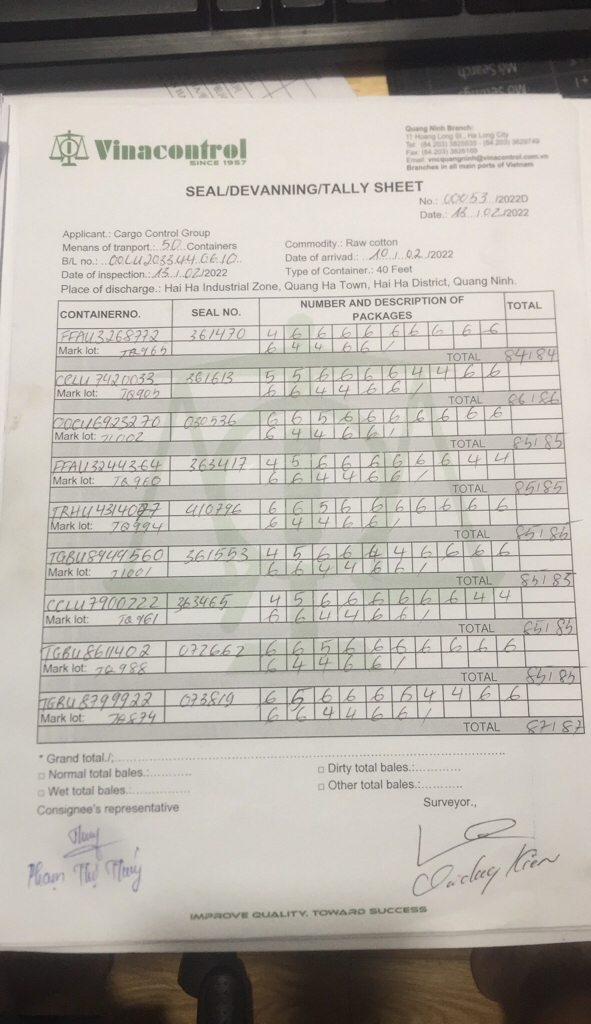 Vinacontrol
SINCE 1957
Quang Ninh Branch:
11 Hoang Long St., Ha Long City
Branches in all main parts of Vietnam
SEAL/DEVANNING/TALLY SHEET
No.: 00053 /2022D
Date.: 13 / 02 /2022
Applicant.: Cargo Control Group
Menans of tranport.: 50 Containers
Commodity.: Raw cotton
B/L no.:
Date of arrival.: 10 / 02 /2022
Date of inspection.: 13 / 02/2022
Type of Container.: 40 Feet
Place of discharge.: Hai Ha Industrial Zone, Quang Ha Town, Hai Ha District, Quang Ninh.
CONTAINERNO. SEAL NO. NUMBER AND DESCRIPTION OF PACKAGES TOTAL
FFAU3268772 361470 4 6 6 6 6 6 6 6 6 6
Mark lot: 7Q965 6 4 4 6 6 /
TOTAL 84184
CCLU 7420033 361613 5 5 6 6 6 6 4 4 6 6
Mark lot: 7Q905 6 6 4 4 6 6 /
TOTAL 86186
030536 6 6 5 6 6 6 6 6 6 6
Mark lot: 71002 6 4 4 6 6 /
TOTAL 85185
FFAU3244364 363417 4 5 6 6 6 6 6 6 4 4
Mark lot: 7Q960 6 6 4 4 6 6 /
TOTAL 85185
410796 6 6 5 6 6 6 6 6 6 6
Mark lot: 7Q994 6 4 4 6 6 /
TOTAL
TGBU8449560 361553 4 5 6 6 4 4 6 6 6 6
Mark lot: 71001 6 6 4 4 6 6 /
TOTAL
CCLU7900222 363465 4 5 6 6 6 6 6 6 4 4
Mark lot: 7Q961 6 6 4 4 6 6 /
TOTAL 85185
TGBU8611402 072662 6 6 5 6 6 6 6 6 6 6
Mark lot: 7Q988 6 4 4 6 6 /
TOTAL 85185
TGBU8799922 073819 6 5 6 6 6 6 4 4 6 6
Mark lot: 7Q874 6 6 4 4 6 6 /
TOTAL 87187
* Grand total./:
□ Normal total bales.:
□ Dirty total bales.:
□ Wet total bales.:
□ Other total bales.:
Consignee's representative
Surveyor.,
Thuy
Phạm Thị Thúy
IMPROVE QUALITY, TOWARD SUCCESS